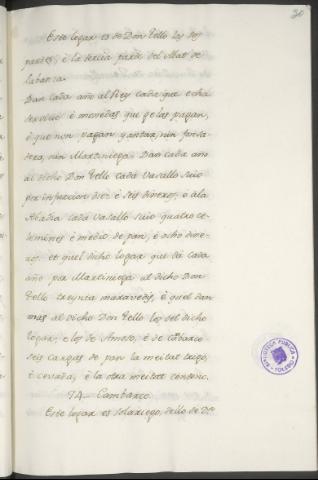 30
Este logar es de Don Tello las dos
partes, è la tercia parte del Abat de
labanza.
Dan cada año al Rey cada que echa
servicio è monedas que ge las pagan,
è que non pagan yantar, nin fonsa-
dera, nin Martiniega. Dan cada año
al dicho Don Tello cada vasallo suio
por infurcion diez è seis dineros, è à la
Abadia cada vasallo suio quatro ce-
lemines è medio de pan, è ocho dine-
ros. et quel dicho logar que dà cada
año por Martiniega al dicho Don
Tello treynta maravedis, è quel dan
mas al dicho Don Tello los del dicho
logar, è los de Amoso, è de
seis cargas de pan la meitat trigo,
è cevada, è la otra meitat centeno.
74.. Cambarco.
Este logar es solariego, dello de Dn
BIBLIOTECA PUBLICA
TOLEDO